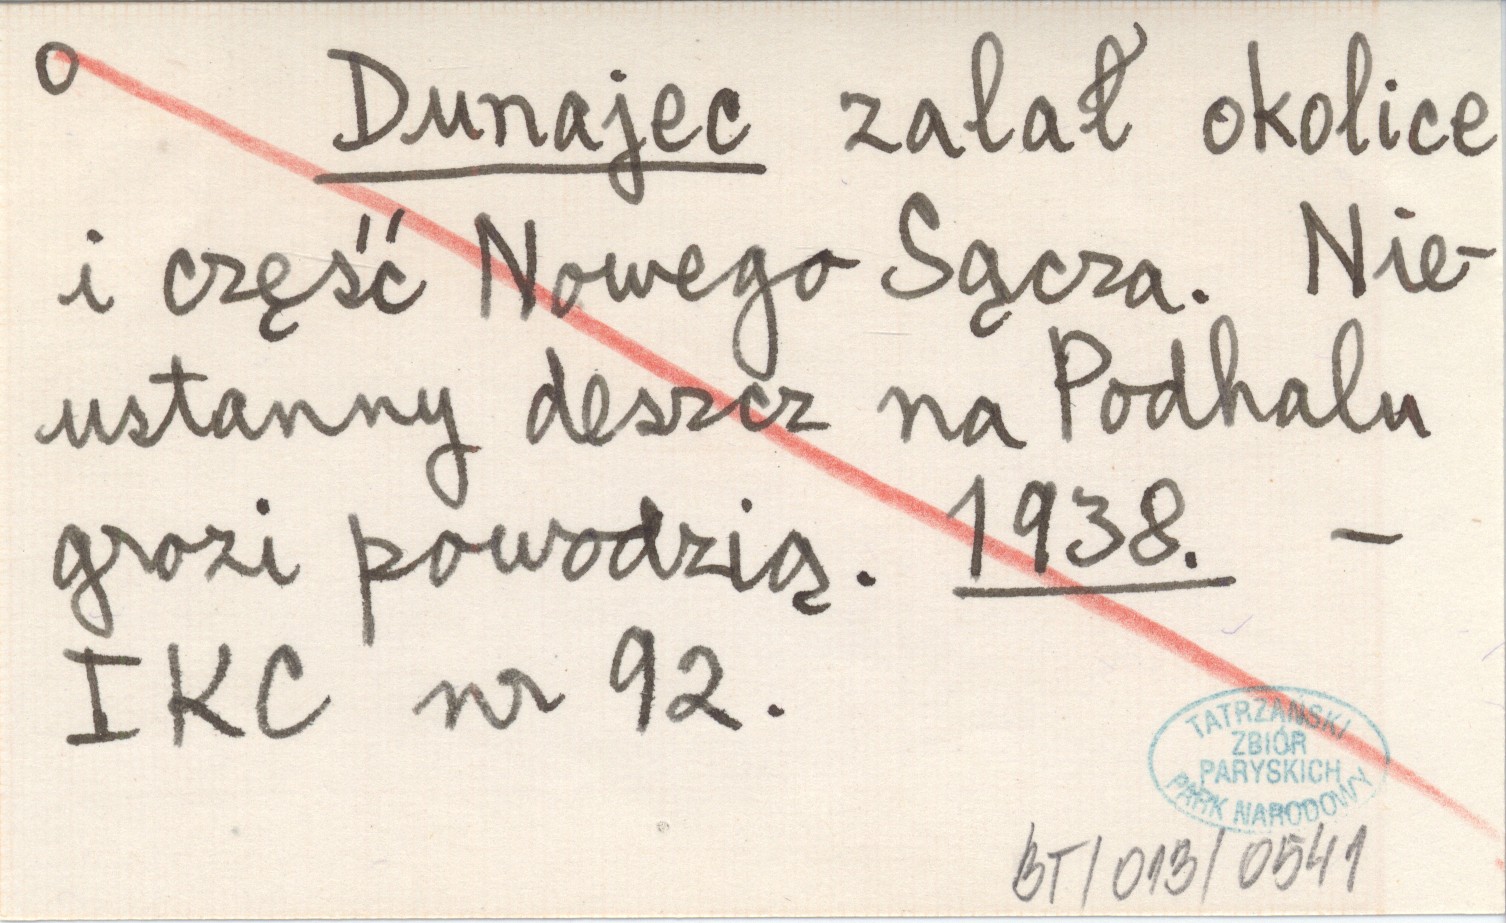 o Dunajec zalał okolice
i część Nowego Sącza. Nie-
ustanny deszcz na Podhalu
grozi powodzią. 1938. –
IKC nr 92.
TATRZAŃSKI
ZBIÓR
PARYSKICH
PARK NARODOWY
BT/013/0541